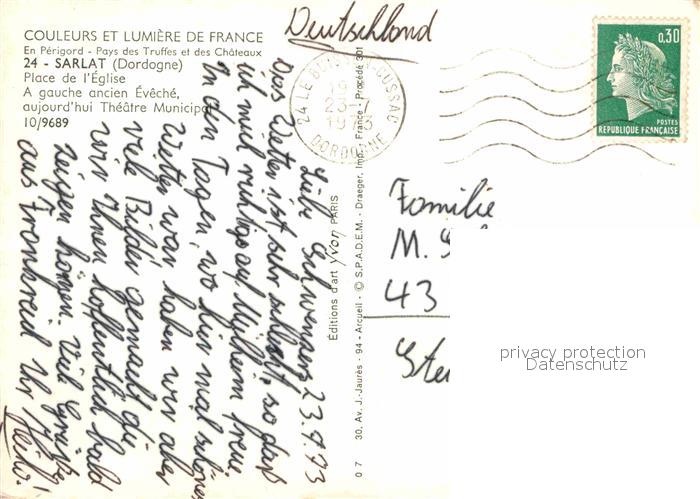 COULEURS ET LUMIÈRE DE FRANCE
En Périgord - Pays des Truffes et des Châteaux
24 - SARLAT (Dordogne)
Place de l'Église
A gauche ancien Évêché,
aujourd'hui Théâtre Municipal
10/9689
Deutschland
24 LE BUISSON-CUSSAC
23-7
1973
DORDOGNE
0,30
POSTES
REPUBLIQUE FRANÇAISE
23.7.73
Liebe
Das Wetter ist sehr schlecht, so daß
ich mich richtig auf Mülheim freue.
In den Tagen, wo hier mal schönes
Wetter war haben wir aber
viele Bilder gemacht die
wir Ihnen hoffentlich bald
zeigen können. Viele Grüße
aus Frankreich Ihr
Éditions d'art Yvon PARIS
30, Av. J.-Jaurès - 94 - Arcueil - © S.P.A.D.E.M. - Draeger, Imp. - France - Procédé 301
0 7
Familie
M.
43
privacy protection
Datenschutz